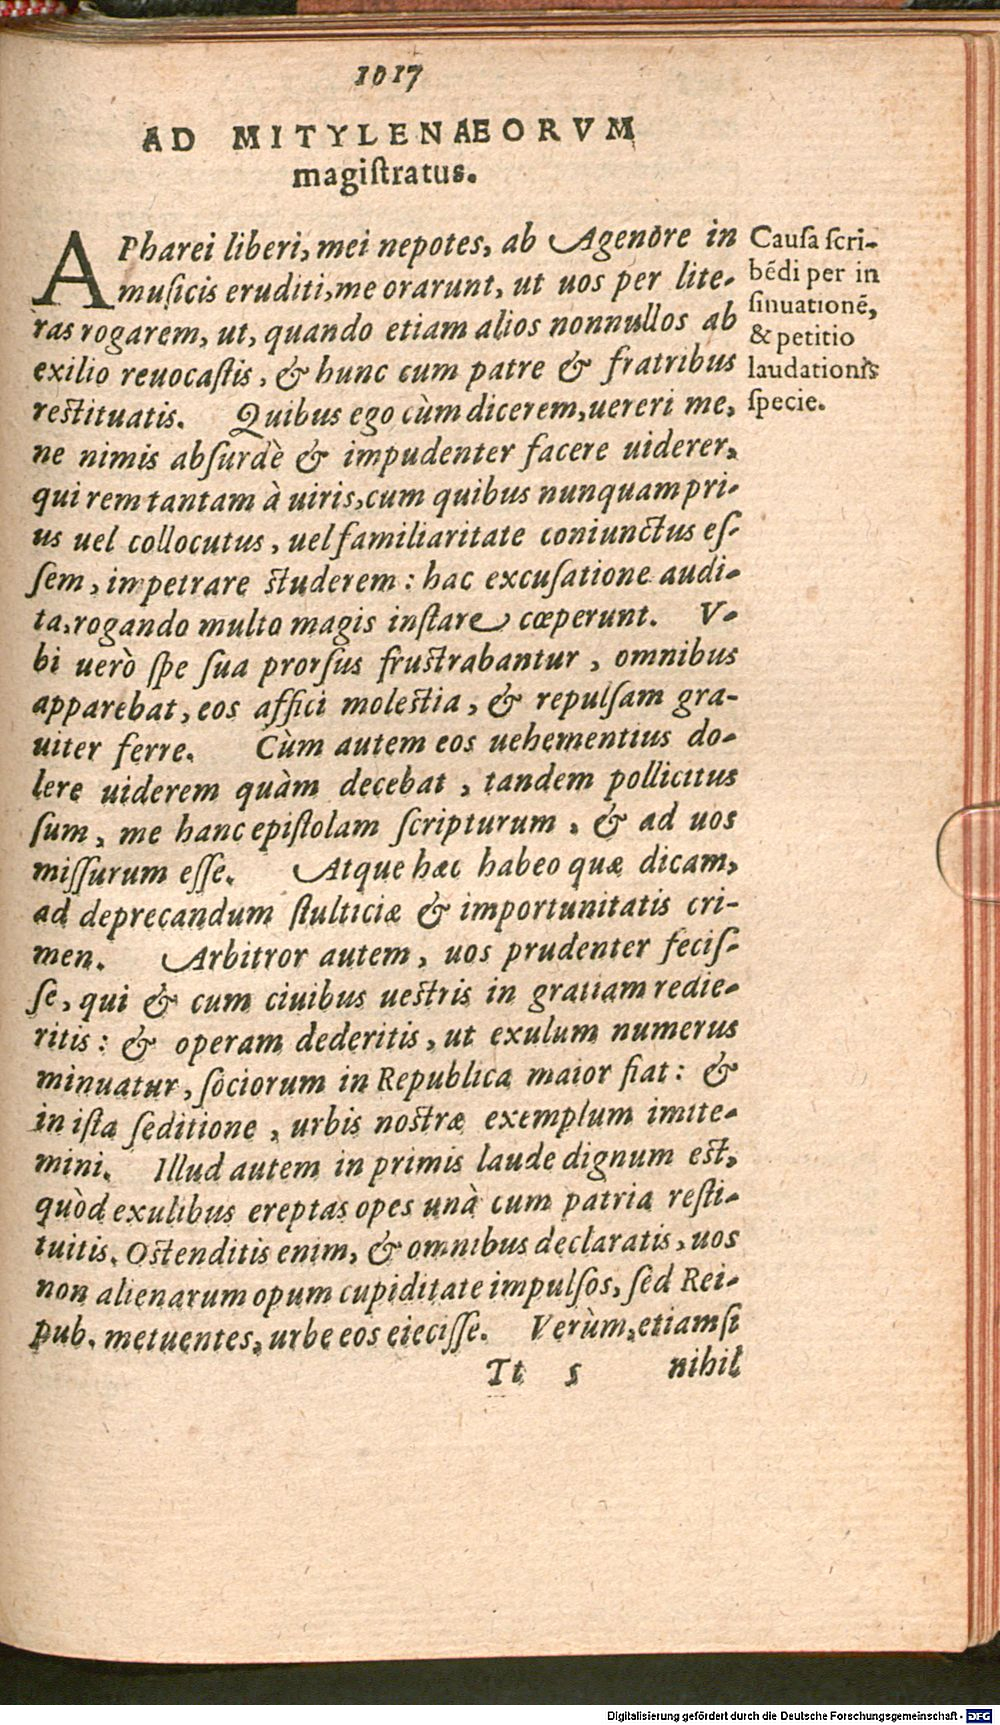 1017
AD MITYLENÆORVM
magiſtratus.
APharei liberi, mei nepotes, ab Agenore in
muſicis eruditi, me orarunt, ut uos per lite-
ras rogarem, ut, quando etiam alios nonnullos ab
exilio reuocaſtis, & hunc cum patre & fratribus
reſtituatis. Quibus ego cùm dicerem, uereri me,
ne nimis abſurdè & impudenter facere uiderer,
qui rem tantam à uiris, cum quibus nunquam pri-
us uel collocutus, uel familiaritate coniunctus eſ-
ſem, impetrare ſtuderem: hac excuſatione audi-
ta, rogando multo magis inſtare cœperunt. V-
bi uerò ſpe ſua prorſus fruſtrabantur, omnibus
apparebat, eos affici moleſtia, & repulſam gra-
uiter ferre. Cùm autem eos uehementius do-
lere uiderem quàm decebat, tandem pollicitus
ſum, me hanc epiſtolam ſcripturum, & ad uos
miſſurum eſſe. Atque hæc habeo quæ dicam,
ad deprecandum ſtulticiæ & importunitatis cri-
men. Arbitror autem, uos prudenter feciſ-
ſe, qui & cum ciuibus ueſtris in gratiam redie-
ritis: & operam dederitis, ut exulum numerus
minuatur, ſociorum in Republica maior fiat: &
in iſta ſeditione, urbis noſtræ exemplum imite-
mini. Illud autem in primis laude dignum eſt,
quòd exulibus ereptas opes unà cum patria reſti-
tuitis. Oſtenditis enim, & omnibus declaratis, uos
non alienarum opum cupiditate impulſos, ſed Rei-
pub. metuentes, urbe eos eieciſſe. Verùm, etiamſi
Tt s nihil
Cauſa ſcri-
bēdi per in
ſinuationē,
& petitio
laudationis
ſpecie.
Digitalisierung gefördert durch die Deutsche Forschungsgemeinschaft - DFG